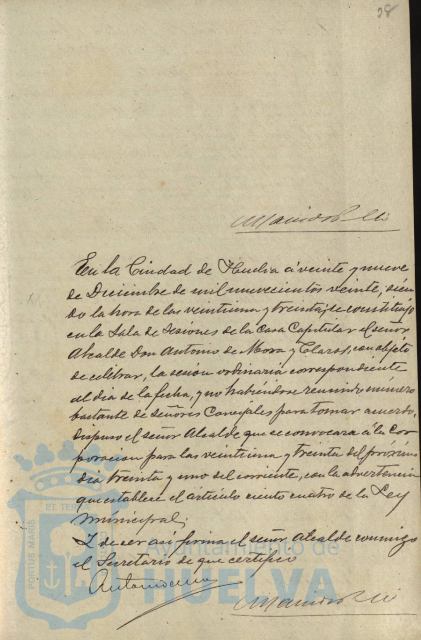 28
En la Ciudad de Huelva á veinte y nueve
de Diciembre de mil novecientos veinte, sien
do la hora de las veintiuna y treinta, se constituyó
en la Sala de Sesiones de la Casa Capitular el señor
Alcalde Don Antonio de Mora y Claros, con objeto
de celebrar, la sesión ordinaria correspondiente
al día de la fecha, y no habiéndose reunido número
bastante de señores Concejales para tomar acuerdo,
dispuso el señor Alcalde que se convocara á la Cor
poración para las veintiuna y treinta del próximo
día treinta y uno del corriente, con la advertencia
que establece el artículo ciento cuatro de la Ley
Municipal;
Y de ser así firma el señor Alcalde conmigo
el Secretario de que certifico
Antonio
PORTUS MARIS
ET TERR
Ayuntamiento de
HUELVA